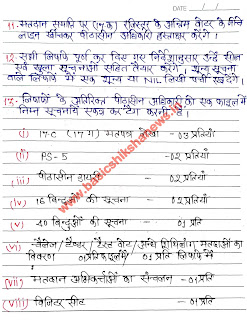 DATE / /
11. मतदान समाप्ति पर (17 क) रजिस्टर के अन्तिम वोटर के नीचे
लाइन खींचकर पीठासीन अधिकारी हस्ताक्षर करेंगे।
12. सभी लिफाफे पूर्ण कर दिए गए निर्देशानुसार उन्हें सील
एवं खुला सूचनाओं सहित तैयार करेंगे। शून्य सूचना
वाले लिफाफे में एक शून्य या NIL लिखी पर्ची रख देंगे।
13. लिफाफों के अतिरिक्त पीठासीन अधिकारी को एक फाइल में
निम्न सूचनायें टैग करनी है:
(i) 17-C (17 ग) मतपत्र लेखा - 03 प्रतियाँ
(ii) PS-5 - 02 प्रतियाँ
(iii) पीठासीन डायरी - 02 प्रतियाँ
(iv) 16 बिन्दुओं की सूचना - 02 प्रति
(v) 40 बिन्दुओं की सूचना - 01 प्रति
(vi) चैलेंज/टैण्डर/टेस्ट वोट/अन्धे शिथिलांग मतदाताओं का
विवरण 01 प्रति फाइल में/ 01 प्रति लिफाफे में
(vii) मतदान अभिकर्त्ताओं का संचलन - 01 प्रति
(viii) विजिटर सीट - 01 प्रति
www.basicshikshanews.in